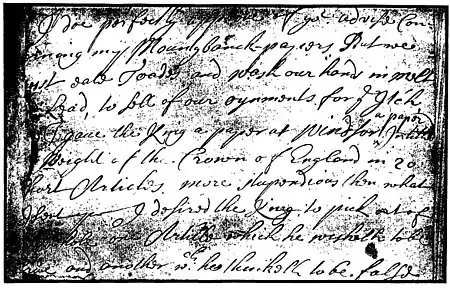 I doe perfectly approve of yr advise Con
cerning my Mountybanck-papers But we
must eate Toades, and wash our hands in molt
Lead, to sell of our oyntments for ye Itch
I gave the King a paper at Windsor, a paper Intitled
Weight of the Crown of England in 20
short Articles, more stupendious then what
I desired the King to pick out of
one Article which he wisheth to be
and another wch hee thinketh to be false